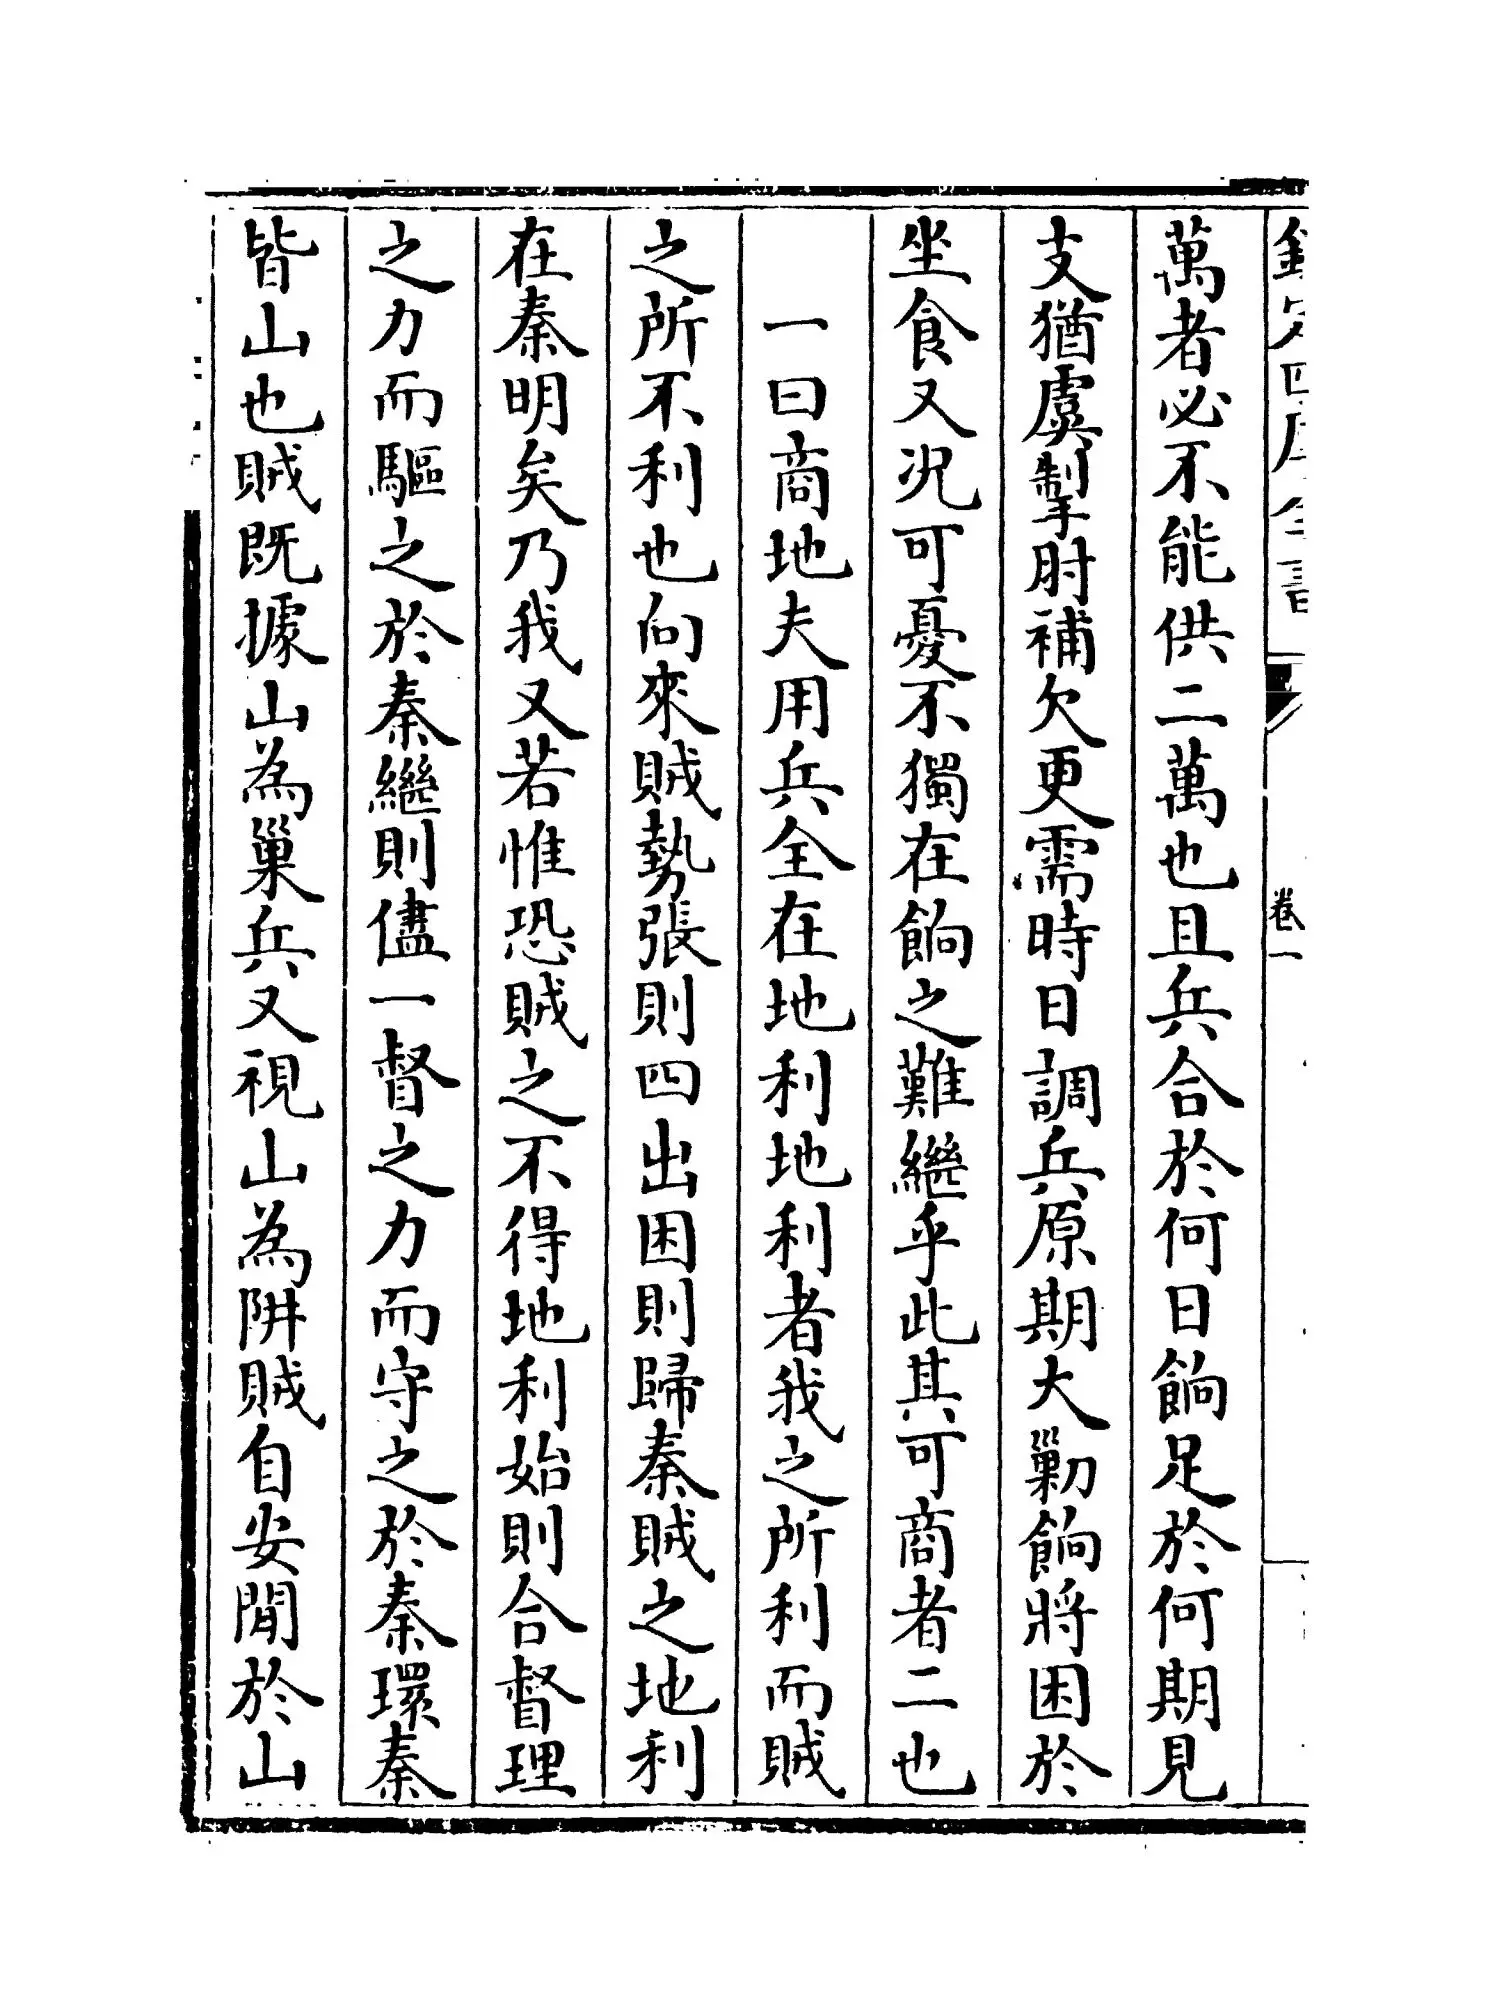 欽定四庫全書
卷一
萬者必不能供二萬也且兵合於何日餉足於何期見
支猶虞掣肘補欠更需時日調兵原期大勦餉將困於
坐食又况可憂不獨在餉之難繼乎此其可商者二也
一曰商地夫用兵全在地利地利者我之所利而賊
之所不利也向來賊勢張則四出困則歸秦賊之地利
在秦明矣乃我又若惟恐賊之不得地利始則合督理
之力而驅之於秦繼則儘一督之力而守之於秦環秦
皆山也賊既據山為巢兵又視山為阱賊自安閒於山